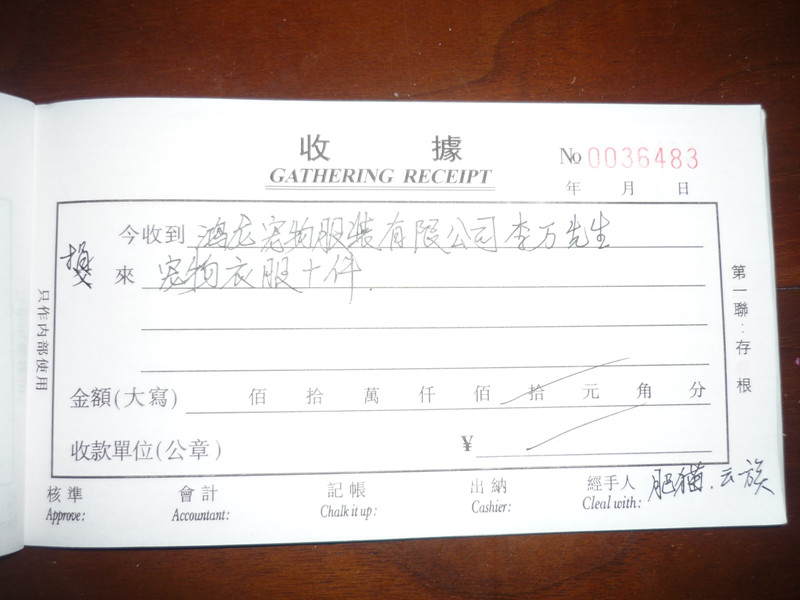 收 據
GATHERING RECEIPT
No 0036483
年 月 日
今收到 鸿龙宠物服装有限公司李万先生
來 宠物衣服十件.
金額(大寫) 佰 拾 萬 仟 佰 拾 元 角 分
收款單位(公章) ¥
核準 會計 記帳 出納 經手人 肥猫.云族
Approve: Accountant: Chalk it up: Cashier: Cleal with:
只作内部使用
第一聯:存根